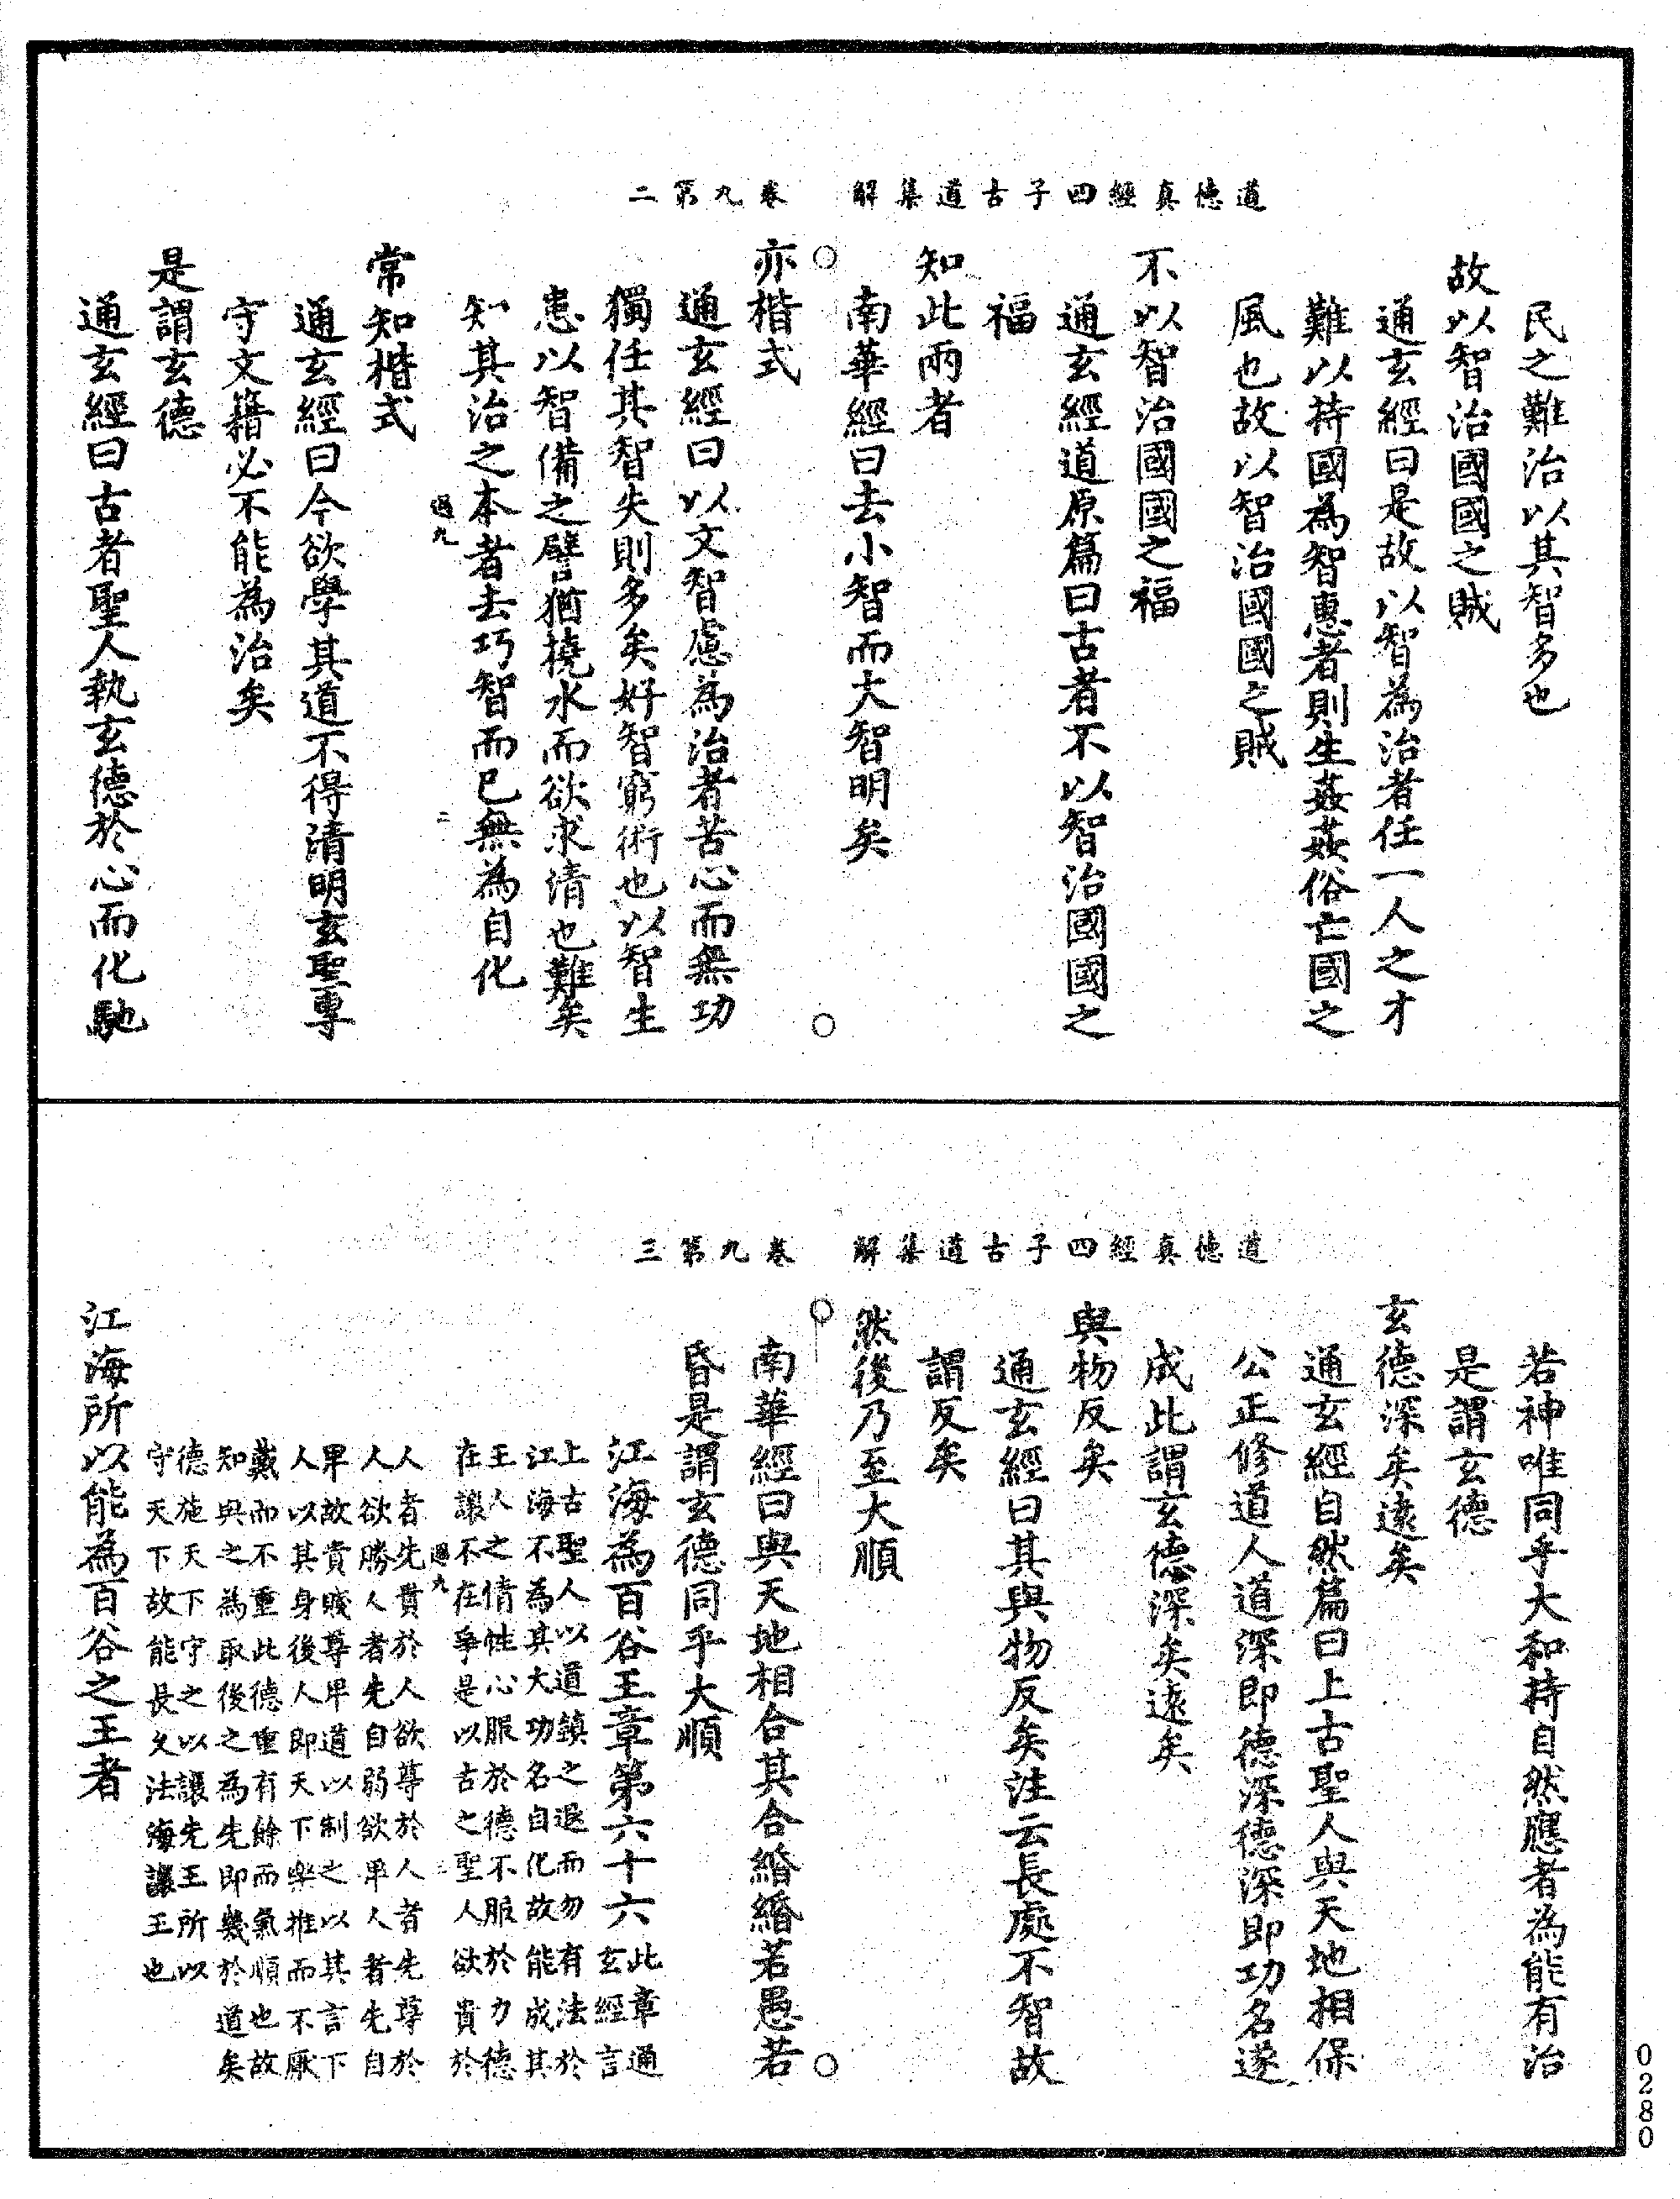 道德真經四子古道集解　卷九第二
民之難治以其智多也
故以智治國國之賊
通玄經曰是故以智為治者任一人之才
難以持國為智惠者則生姦姦俗亡國之
風也故以智治國國之賊
不以智治國國之福
通玄經道原篇曰古者不以智治國國之
福
知此兩者
南華經曰去小智而大智明矣
亦楷式
通玄經曰以文智慮為治者苦心而無功
獨任其智失則多矣好智窮術也以智生
患以智備之譬猶撓水而欲求清也難矣
知其治之本者去巧智而已無為自化
過九
二
常知楷式
通玄經曰今欲學其道不得清明玄聖專
守文籍必不能為治矣
是謂玄德
通玄經曰古者聖人執玄德於心而化馳
道德真經四子古道集解　卷九第三
若神唯同乎大和持自然應者為能有治
是謂玄德
玄德深矣遠矣
通玄經自然篇曰上古聖人與天地相保
公正修道人道深即德深德深即功名遂
成此謂玄德深矣遠矣
與物反矣
通玄經曰其與物反矣注云長處不智故
謂反矣
然後乃至大順
南華經曰與天地相合其合緡緡若愚若
昏是謂玄德同乎大順
江海為百谷王章第六十六
此章通
玄經言
上古聖人以道鎮之退而勿有法於
江海不為其大功名自化故能成其
王人之情性心服於德不服於力德
在讓不在爭是以古之聖人欲貴於
過九
三
人者先貴於人欲尊於人者先尊於
人欲勝人者先自弱欲卑人者先自
卑故貴賤尊卑道以制之以其言下
人以其身後人即天下樂推而不厭
戴而不重此德重有餘而氣順也故
知與之為取後之為先即幾於道矣
德施天下守之以讓先王所以
守天下故能長久法海讓王也
江海所以能為百谷之王者
0280